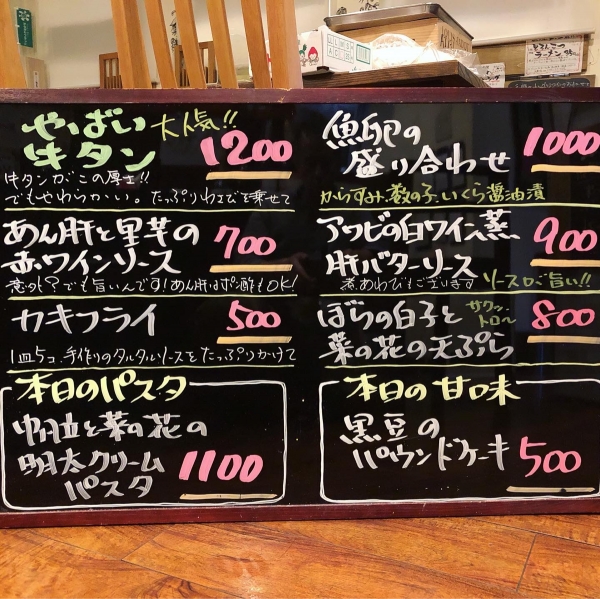 やばい
牛タン
大人気!!
1200
牛タンがこの厚さ!!
でもやわらかい。たっぷりわさびを乗せて
あん肝と里芋の
赤ワインソース
700
意外?でも旨いんです!あん肝はポン酢もOK!
カキフライ
500
1皿5コ、手作りのタルタルソースをたっぷりかけて
本日のパスタ
帆立と菜の花の
明太クリーム
パスタ
1100
魚卵の
盛り合わせ
1000
からすみ、数の子、いくら醤油漬
アワビの白ワイン蒸
肝バターソース
900
煮あわびもございます
ソースロが旨い!!
ぼらの白子と
菜の花の天ぷら
サクッ
トロ〜
800
本日の甘味
黒豆の
パウンドケーキ
500
とんこつ
ラーメン